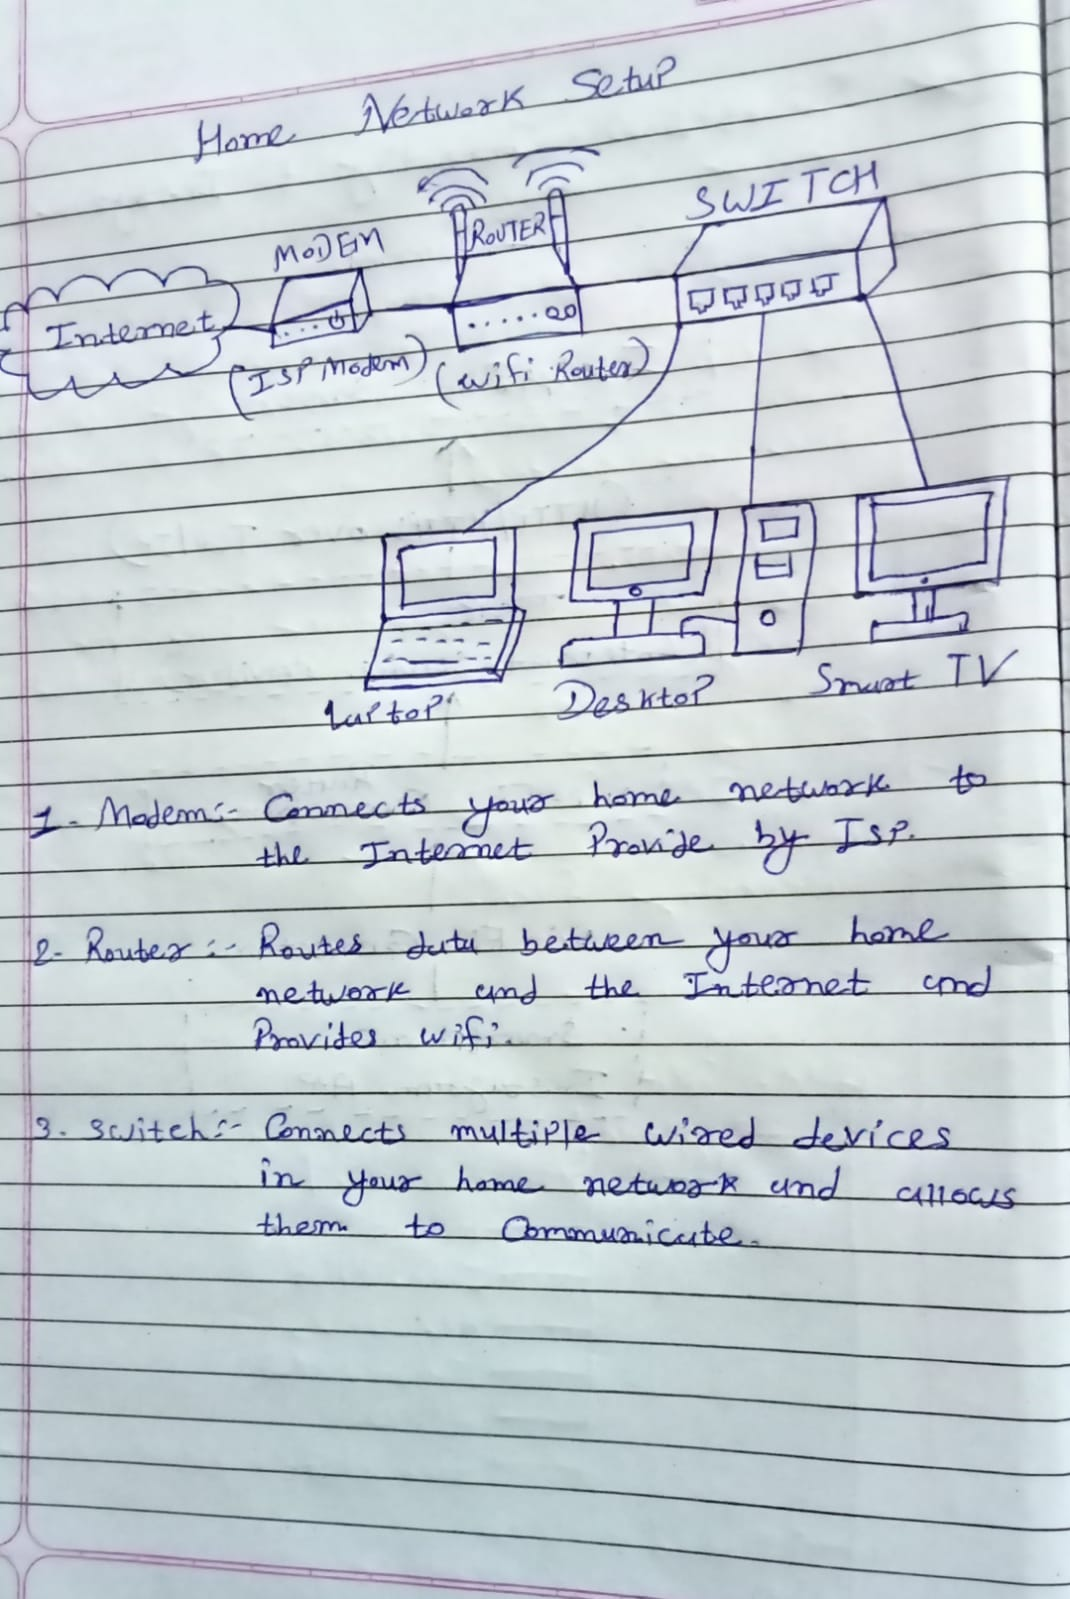 Home Network Setup
SWITCH
ROUTER
MODEM
Internet
(ISP Modem) (wifi Router)
Laptop Desktop Smart TV
1- Modem:- Connects your home network to
the Internet Provide by ISP.
2- Router:- Routes data between your home
network and the Internet and
Provides wifi.
3. Switch:- Connects multiple wired devices
in your home network and allows
them to Communicate.